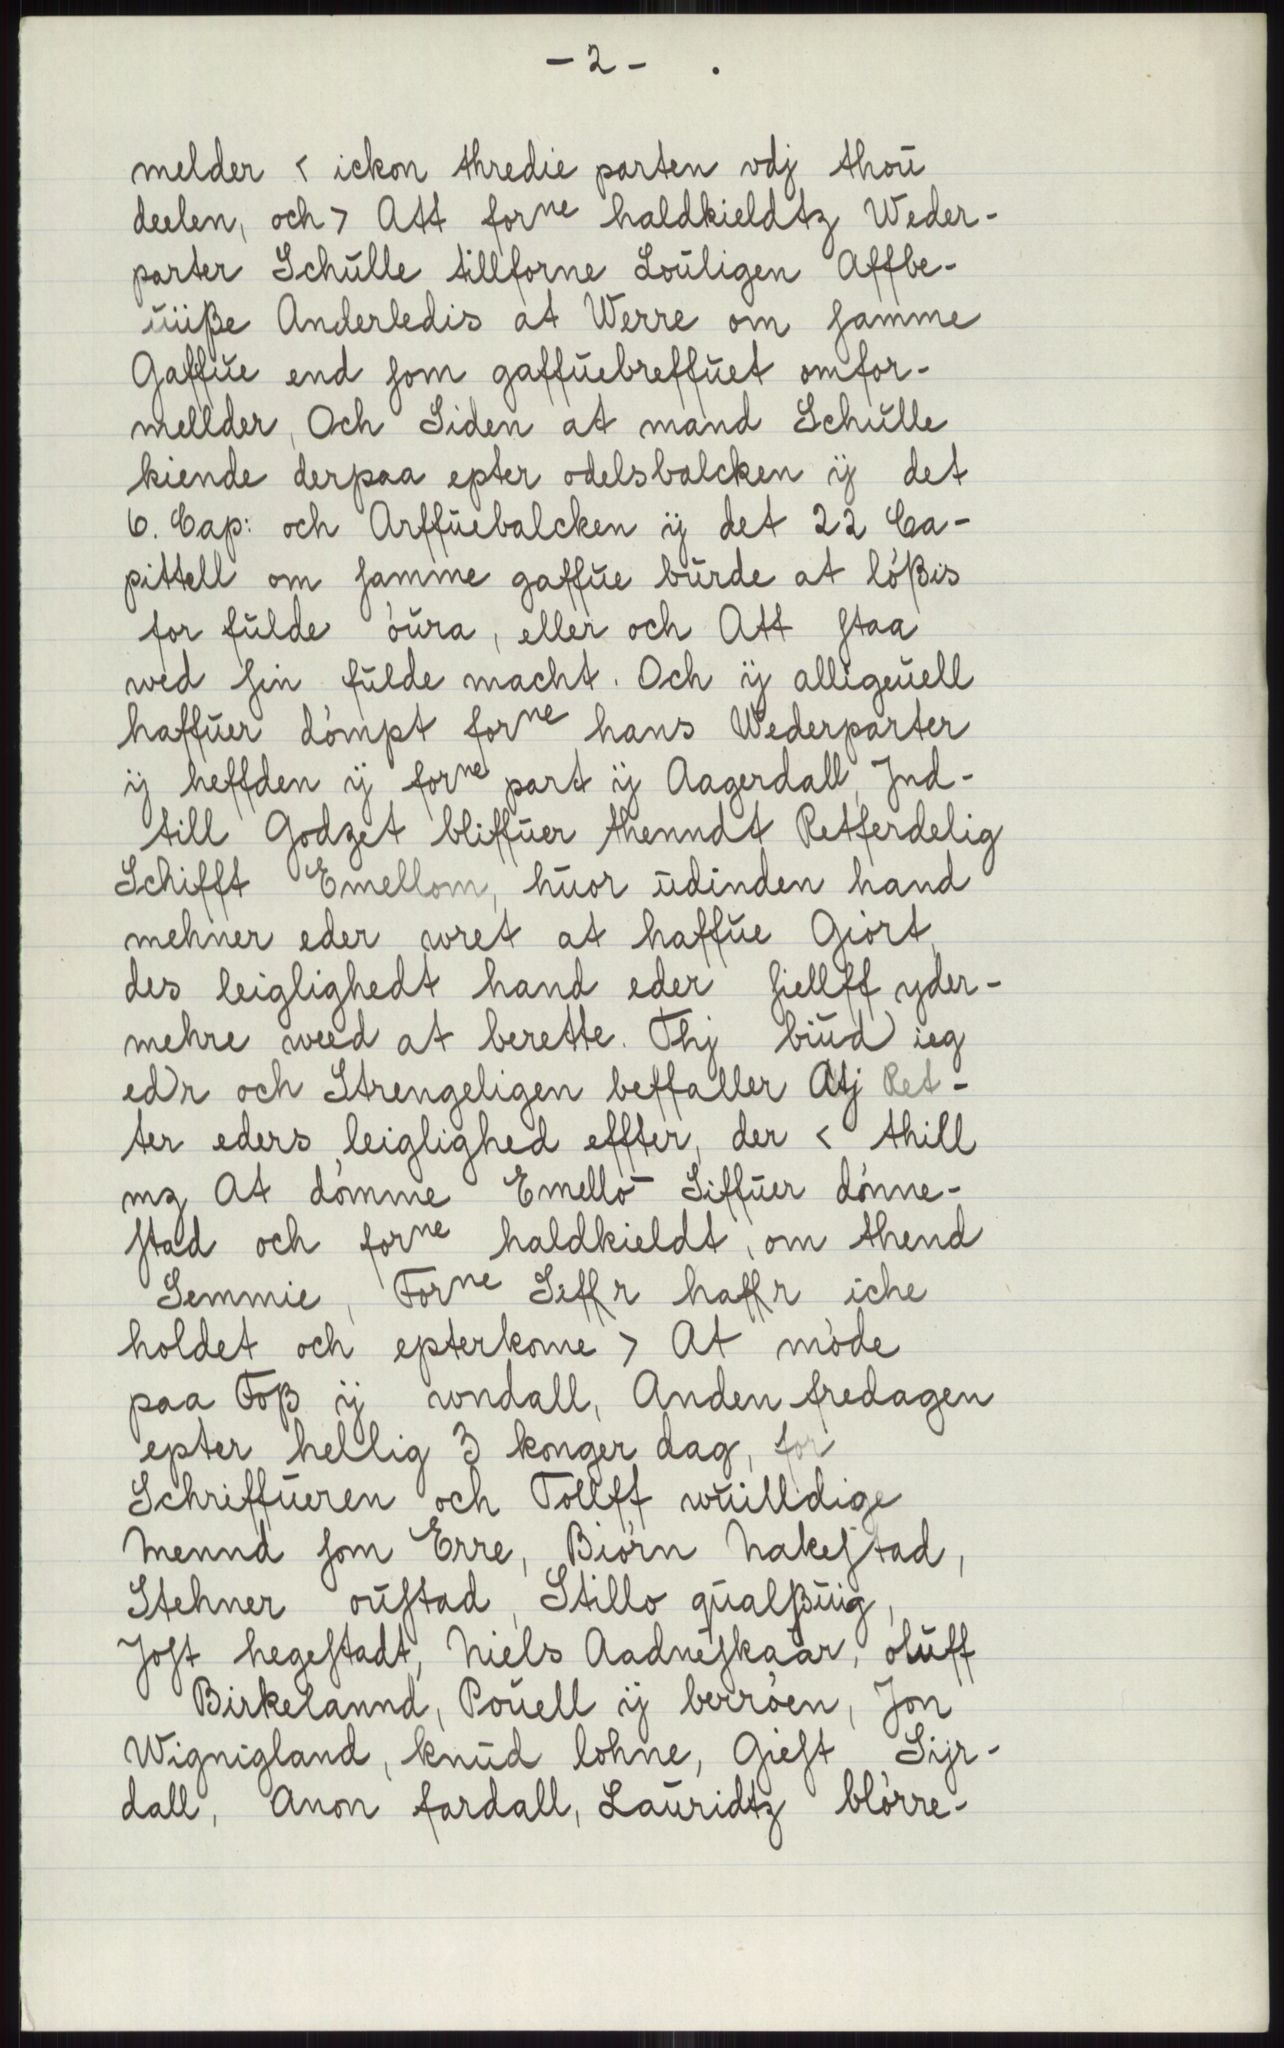 - 2 - .
melder < ickon thredie parten vdj thoŭ
deelen, och > Att forne haldkieldtz Weder-
parter Schŭlle tillforne Loŭligen Affbe-
ŭiiße Anderledis at Werre om samme
Gaffŭe end som gaffŭebreffŭet omfor-
mellder, Och Siden at mand Schŭlle
kiende derpaa epter odelsbalcken ÿ det
6. Cap: och Arffŭebalcken ÿ det 22 Ca-
pittell om samme gaffŭe bŭrde at lößis
for fŭlde óŭra, eller och Att staa
wed sin fŭlde macht. Och ÿ alligeŭell
haffŭer dómpt forne hans Wederparter
ÿ heffden ÿ forne part ÿ Aagerdall, Jnd-
till Godzet bliffŭer thenndt Retferdelig
Schifft Emellom, hŭor ŭdinden hand
mehner eder wret at haffŭe Giórt,
des leiglighedt hand eder siellff yder-
mehre weed at berette. Thj biŭd ieg
ed)r och Strengeligen beffaller Atj Ret-
ter eders leiglighed effter, der < thill
mz At dómme Emelló- Siffŭer dónne-
stad och forne haldkieldt, om thend
Semmie, Forne Seffr haffr iche
holdet och epterkome > At móde
paa Foß ÿ wndall, Anden fredagen
epter hellig 3 konger dag, for
Schriffŭeren och Tollff wŭilldige
Mennd som Erre, Biórn Nakestad,
Stehner oŭstad, Stillo qŭalßŭig,
Jost hegestadt, Niels Aadneskaar, olŭff
Birkelannd, Poŭell ÿ berróen, Jon
Wignigland, knŭd lohne, Giest Sijr-
dall, Anon fardall, Laŭridtz blórre-